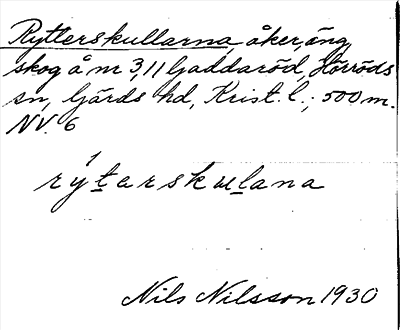 Rytterskullarna, åker, äng,
skog å nr 3, 11 Gaddaröd, Hörröds
sn, Gärds hd, Krist. l.; 500 m.
NV. 6
rýtarskulana
Nils Nilsson 1930